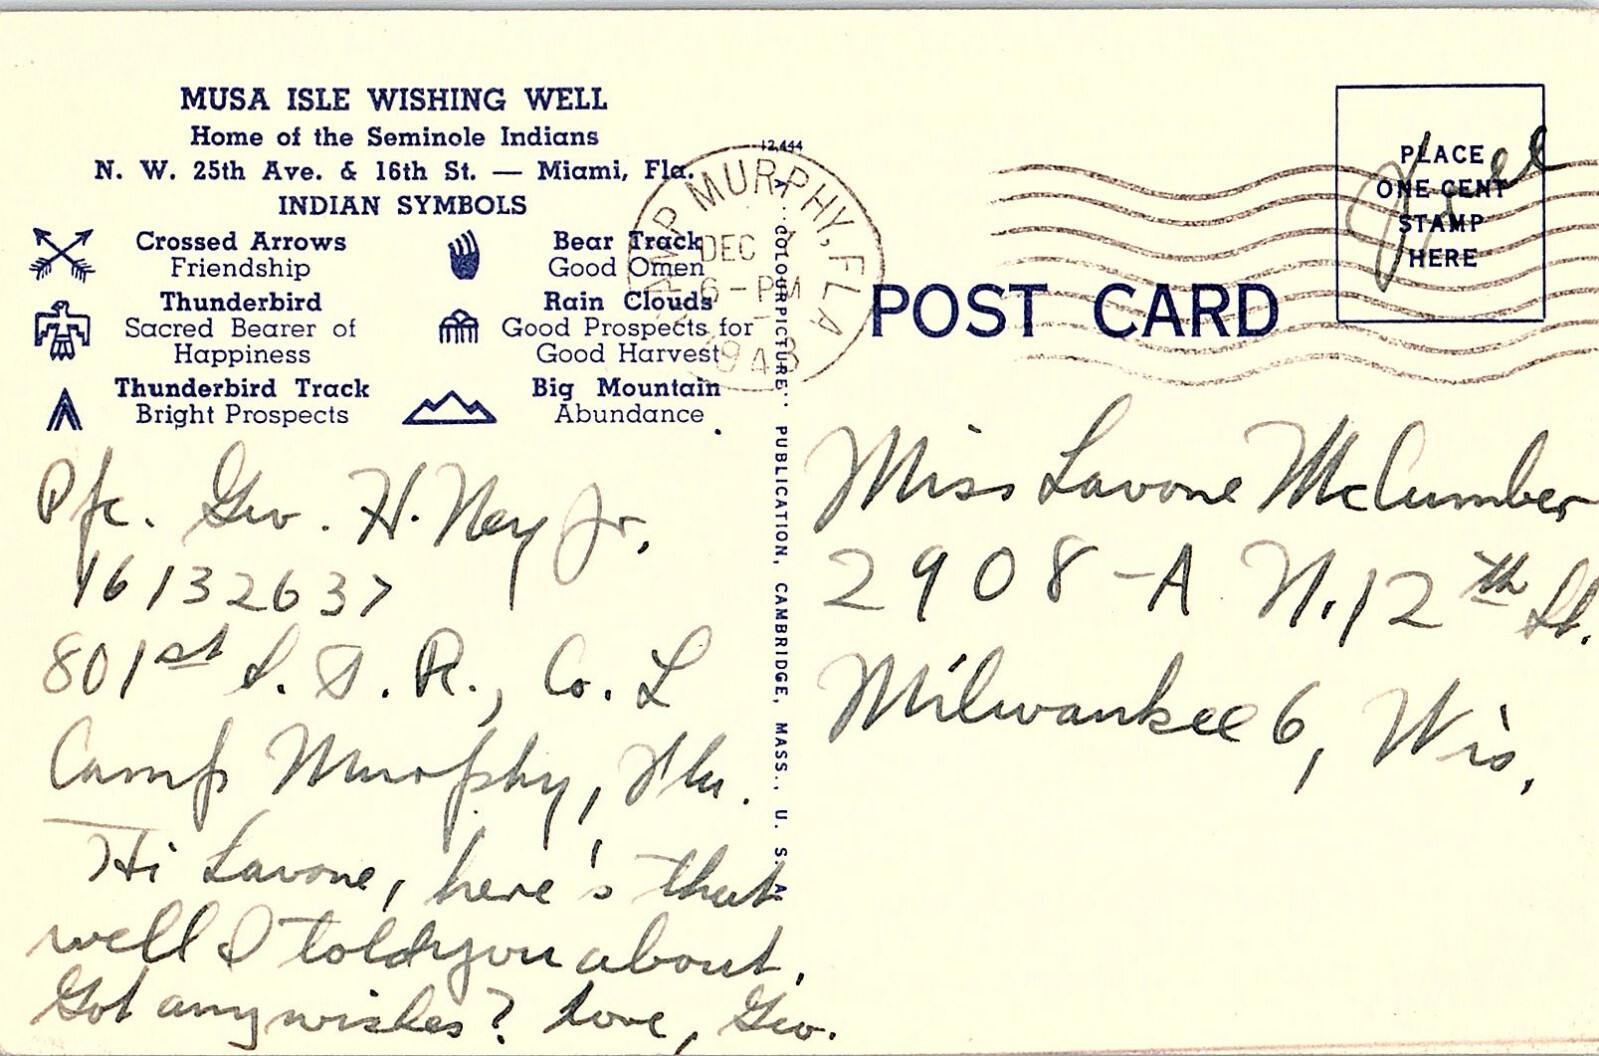 MUSA ISLE WISHING WELL
Home of the Seminole Indians
N. W. 25th Ave. & 16th St. — Miami, Fla.
INDIAN SYMBOLS
Crossed Arrows
Friendship
Thunderbird
Sacred Bearer of
Happiness
Thunderbird Track
Bright Prospects
Bear Track
Good Omen
Rain Clouds
Good Prospects for
Good Harvest
Big Mountain
Abundance
Pfc. Geo. H. Ney Jr.
16132637
801st S. T. R., Co. L
Camp Murphy, Fla.
Hi Lavone, here's that
well I told you about.
Got any wishes? Love, Geo.
12,444
"COLOURPICTURE" PUBLICATION, CAMBRIDGE, MASS., U. S. A.
MURPHY, FLA
DEC
6-PM
1943
POST CARD
PLACE
ONE CENT
STAMP
HERE
Free
Miss Lavone McCumber
2908-A N. 12th St.
Milwaukee 6, Wis.